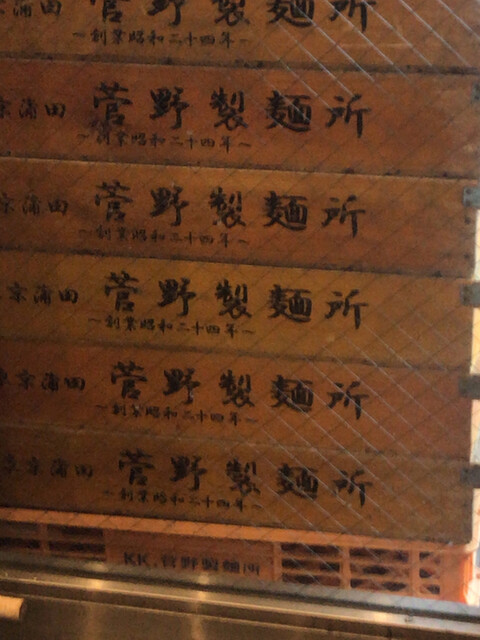 蒲田 菅野製麺所
～創業昭和二十四年～
京蒲田 菅野製麺所
～創業昭和二十四年～
京蒲田 菅野製麺所
～創業昭和二十四年～
京蒲田 菅野製麺所
～創業昭和二十四年～
東京蒲田 菅野製麺所
～創業昭和二十四年～
東京蒲田 菅野製麺所
～創業昭和二十四年～
KK.菅野製麺所